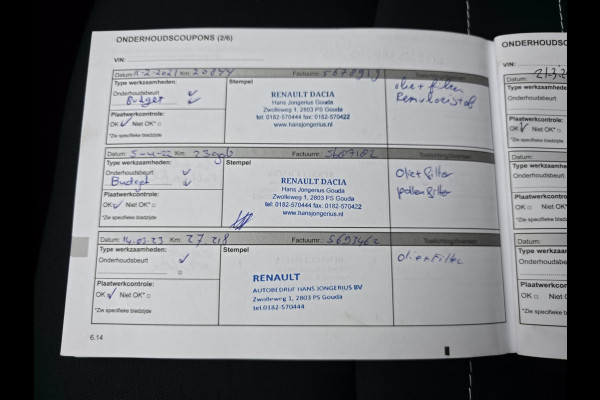 ONDERHOUDSCOUPONS (2/6)
VIN:
Datum: 11-2-2021 Km: 20844 Factuurnr.: 5678919 Toelichting/diversen:
Type werkzaamheden: Stempel
Onderhoudsbeurt ✓
Budget ✓
Plaatwerkcontrole:
OK ✓ Niet OK* □
*Zie specifieke bladzijde
RENAULT DACIA
Hans Jongerius Gouda
Zwolleweg 1, 2803 PS Gouda
tel: 0182-570444 fax: 0182-570422
www.hansjongerius.nl
olie + filter
Datum: 5-4-22 Km: Factuurnr.: Toelichting/diversen:
Type werkzaamheden: Stempel
Onderhoudsbeurt ✓
Budget ✓
Plaatwerkcontrole:
OK ✓ Niet OK* □
*Zie specifieke bladzijde
RENAULT DACIA
Hans Jongerius Gouda
Zwolleweg 1, 2803 PS Gouda
tel: 0182-570444 fax: 0182-570422
www.hansjongerius.nl
olie filter
pollenfilter
Datum: 14-03-23 Km: 27 218 Factuurnr.: 5693462 Toelichting/diversen:
Type werkzaamheden: Stempel
Onderhoudsbeurt ✓
□
Plaatwerkcontrole:
OK ✓ Niet OK* □
*Zie specifieke bladzijde
RENAULT
AUTOBEDRIJF HANS JONGERIUS BV
Zwolleweg 1, 2803 PS Gouda
tel: 0182-570444
olie + filter
6.14
ONDERHOUDSC
VIN:
Datum: 21-3-2
Type werkzaamhe
Onderhoudsbeurt
Plaatwerkcontrole:
OK ✓ Niet OK*
*Zie specifieke bladz
Datum:
Type werkzaamhe
Onderhoudsbeurt
Plaatwerkcontrole:
OK □ Niet OK*
*Zie specifieke bladz
Datum:
Type werkzaamhe
Onderhoudsbeurt
Plaatwerkcontrole:
OK □ Niet OK*
*Zie specifieke bladz